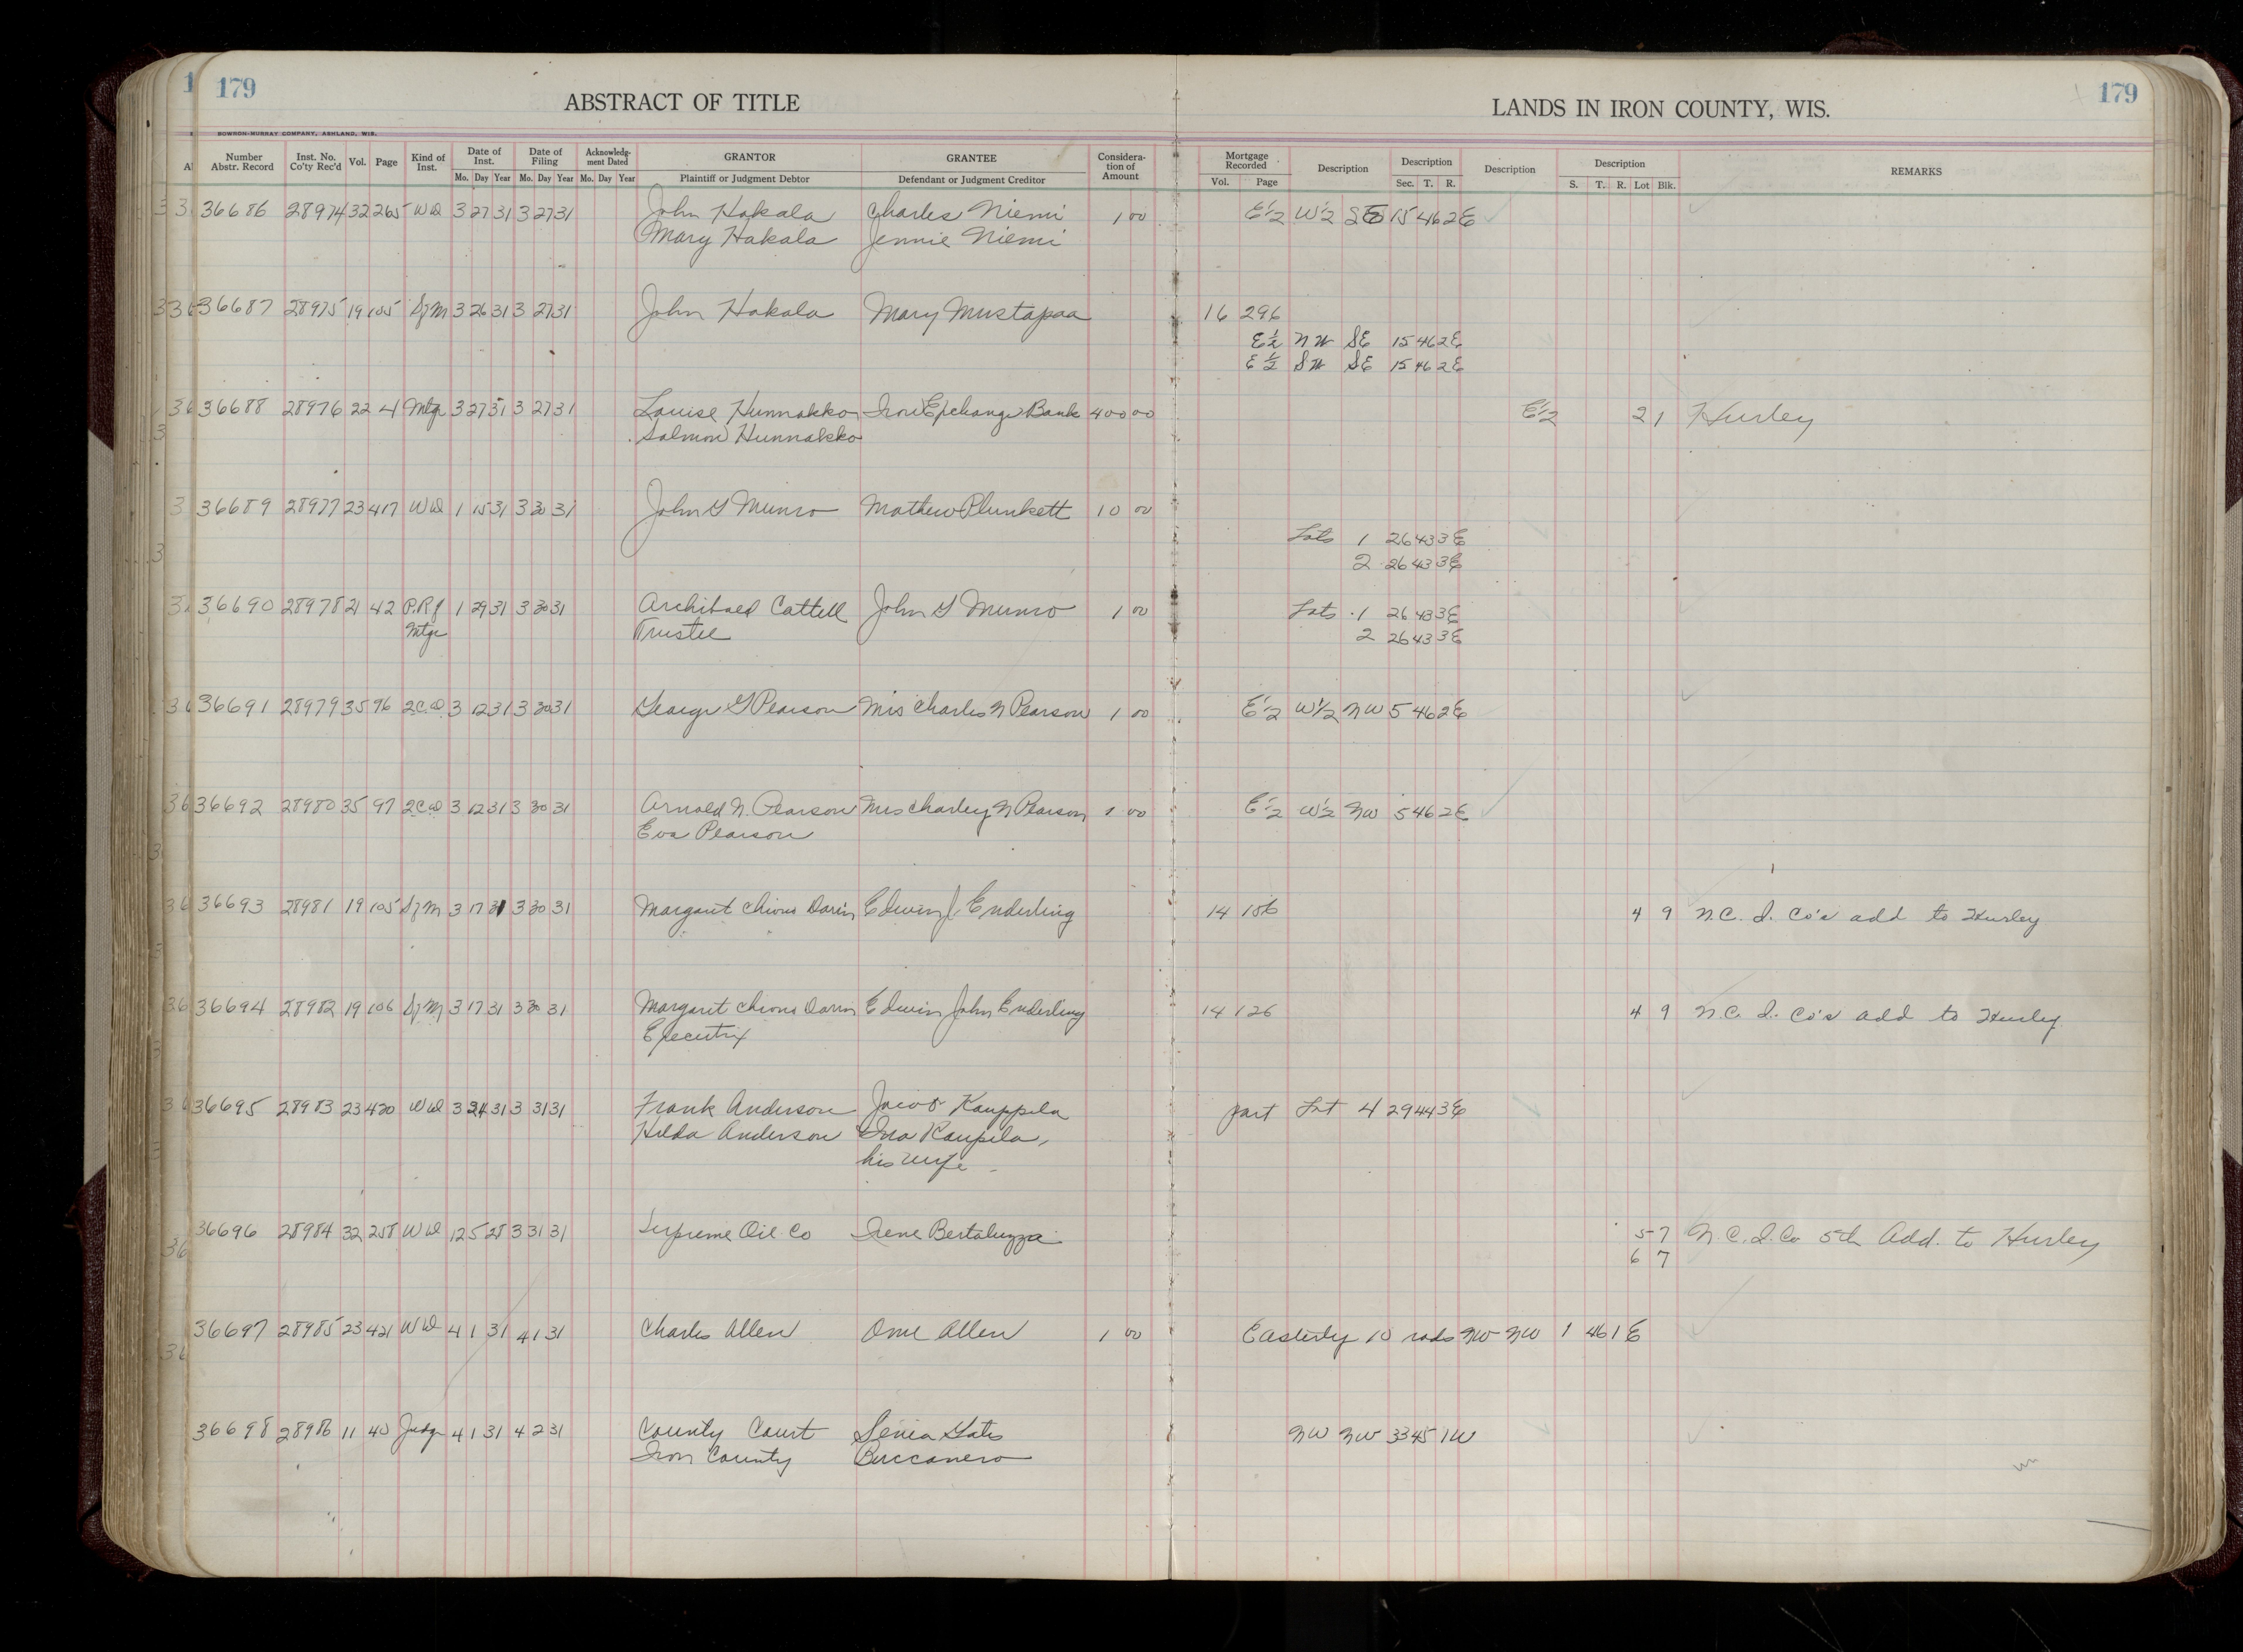 179
ABSTRACT OF TITLE
LANDS IN IRON COUNTY, WIS.
179
BOWRON-MURRAY COMPANY, ASHLAND, WIS.
Number Abstr. Record Inst. No. Co'ty Rec'd Vol. Page Kind of Inst. Date of Inst. Mo. Day Year Date of Filing Mo. Day Year Acknowledgment Dated Mo. Day Year GRANTOR Plaintiff or Judgment Debtor GRANTEE Defendant or Judgment Creditor Consideration of Amount Mortgage Recorded Vol. Page Description Description Sec. T. R. Description Description S. T. R. Lot Blk. REMARKS
36686 28974 32 265 WD 3 27 31 3 27 31 John Hakala Charles Niemi 1 00 E½ W½ SE 15 46 2E
Mary Hakala Jennie Niemi
36687 28975 19 105 SfM 3 26 31 3 27 31 John Hakala Mary Mustapaa 16 296
E½ NW SE 15 46 2E
E½ SW SE 15 46 2E
36688 28976 22 4 Mtge 3 27 31 3 27 31 Louise Hunnakko Iron Exchange Bank 400 00 E½ 2 1 Hurley
Salmon Hunnakko
36689 28977 23 417 WD 1 15 31 3 30 31 John G Munro Mathew Plunkett 10 00
Lots 1 26 43 3E
2 26 43 3E
36690 28978 21 42 P.Rf 1 29 31 3 30 31 Archibald Cattell John G Munro 1 00 Lots 1 26 43 3E
Mtge Trustee 2 26 43 3E
36691 28979 35 96 2CD 3 12 31 3 30 31 George G Pearson Mrs Charles N Pearson 1 00 E½ W½ NW 5 46 2E
36692 28980 35 97 2CD 3 12 31 3 30 31 Arnold N. Pearson Mrs Charley N Pearson 1 00 E½ W½ NW 5 46 2E
Eva Pearson
36693 28981 19 105 SfM 3 17 31 3 30 31 Margaret Darin Edwin J. Enderling 14 156 4 9 N.C. I. Co's add to Hurley
36694 28982 19 106 SfM 3 17 31 3 30 31 Margaret Darin Edwin John Enderling 14 126 4 9 N.C. I. Co's add to Hurley
Executrix
36695 28983 23 420 WD 3 24 31 3 31 31 Frank Anderson Jacob Kauppila part Lot 4 29 44 3E
Hilda Anderson Ina Kaupila,
his wife
36696 28984 32 258 WD 12 5 28 3 31 31 Supreme Oil Co Irene Bertaluzza 5 7 N.C.I.Co 5th Add. to Hurley
6 7
36697 28985 23 421 WD 4 1 31 4 1 31 Charles Allen Allen 1 00 Easterly 10 rods NW NW 1 46 1E
36698 28986 11 40 Judg 4 1 31 4 2 31 County Court NW NW 33 45 1W
Iron County Buccanero